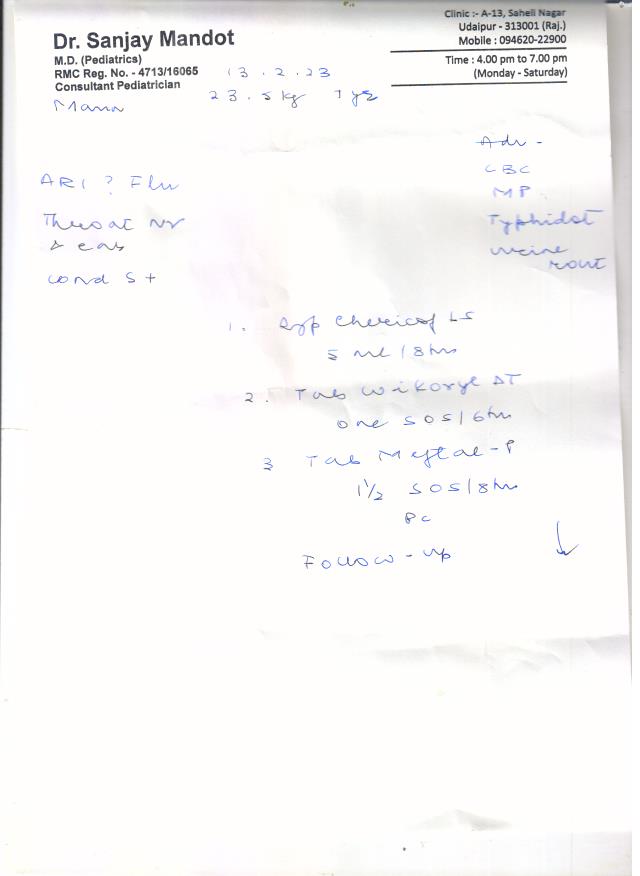 Dr. Sanjay Mandot
M.D. (Pediatrics)
RMC Reg. No. - 4713/16065
Consultant Pediatrician
Clinic :- A-13, Saheli Nagar
Udaipur - 313001 (Raj.)
Mobile : 094620-22900
Time : 4.00 pm to 7.00 pm
(Monday - Saturday)
13.2.23
23.5 kg 7 yrs
Adv -
CBC
MP
Typhidot
urine
rout
ARI ? Flu
Throat Nr
& ears
cond S +
1. Syp LS
5 ml / 8 hrs
2. Tab Wikoryl DT
one SOS / 6 hrs
3 Tab Meftal - P
1 1/2 SOS / 8 hrs
PC
Follow - up